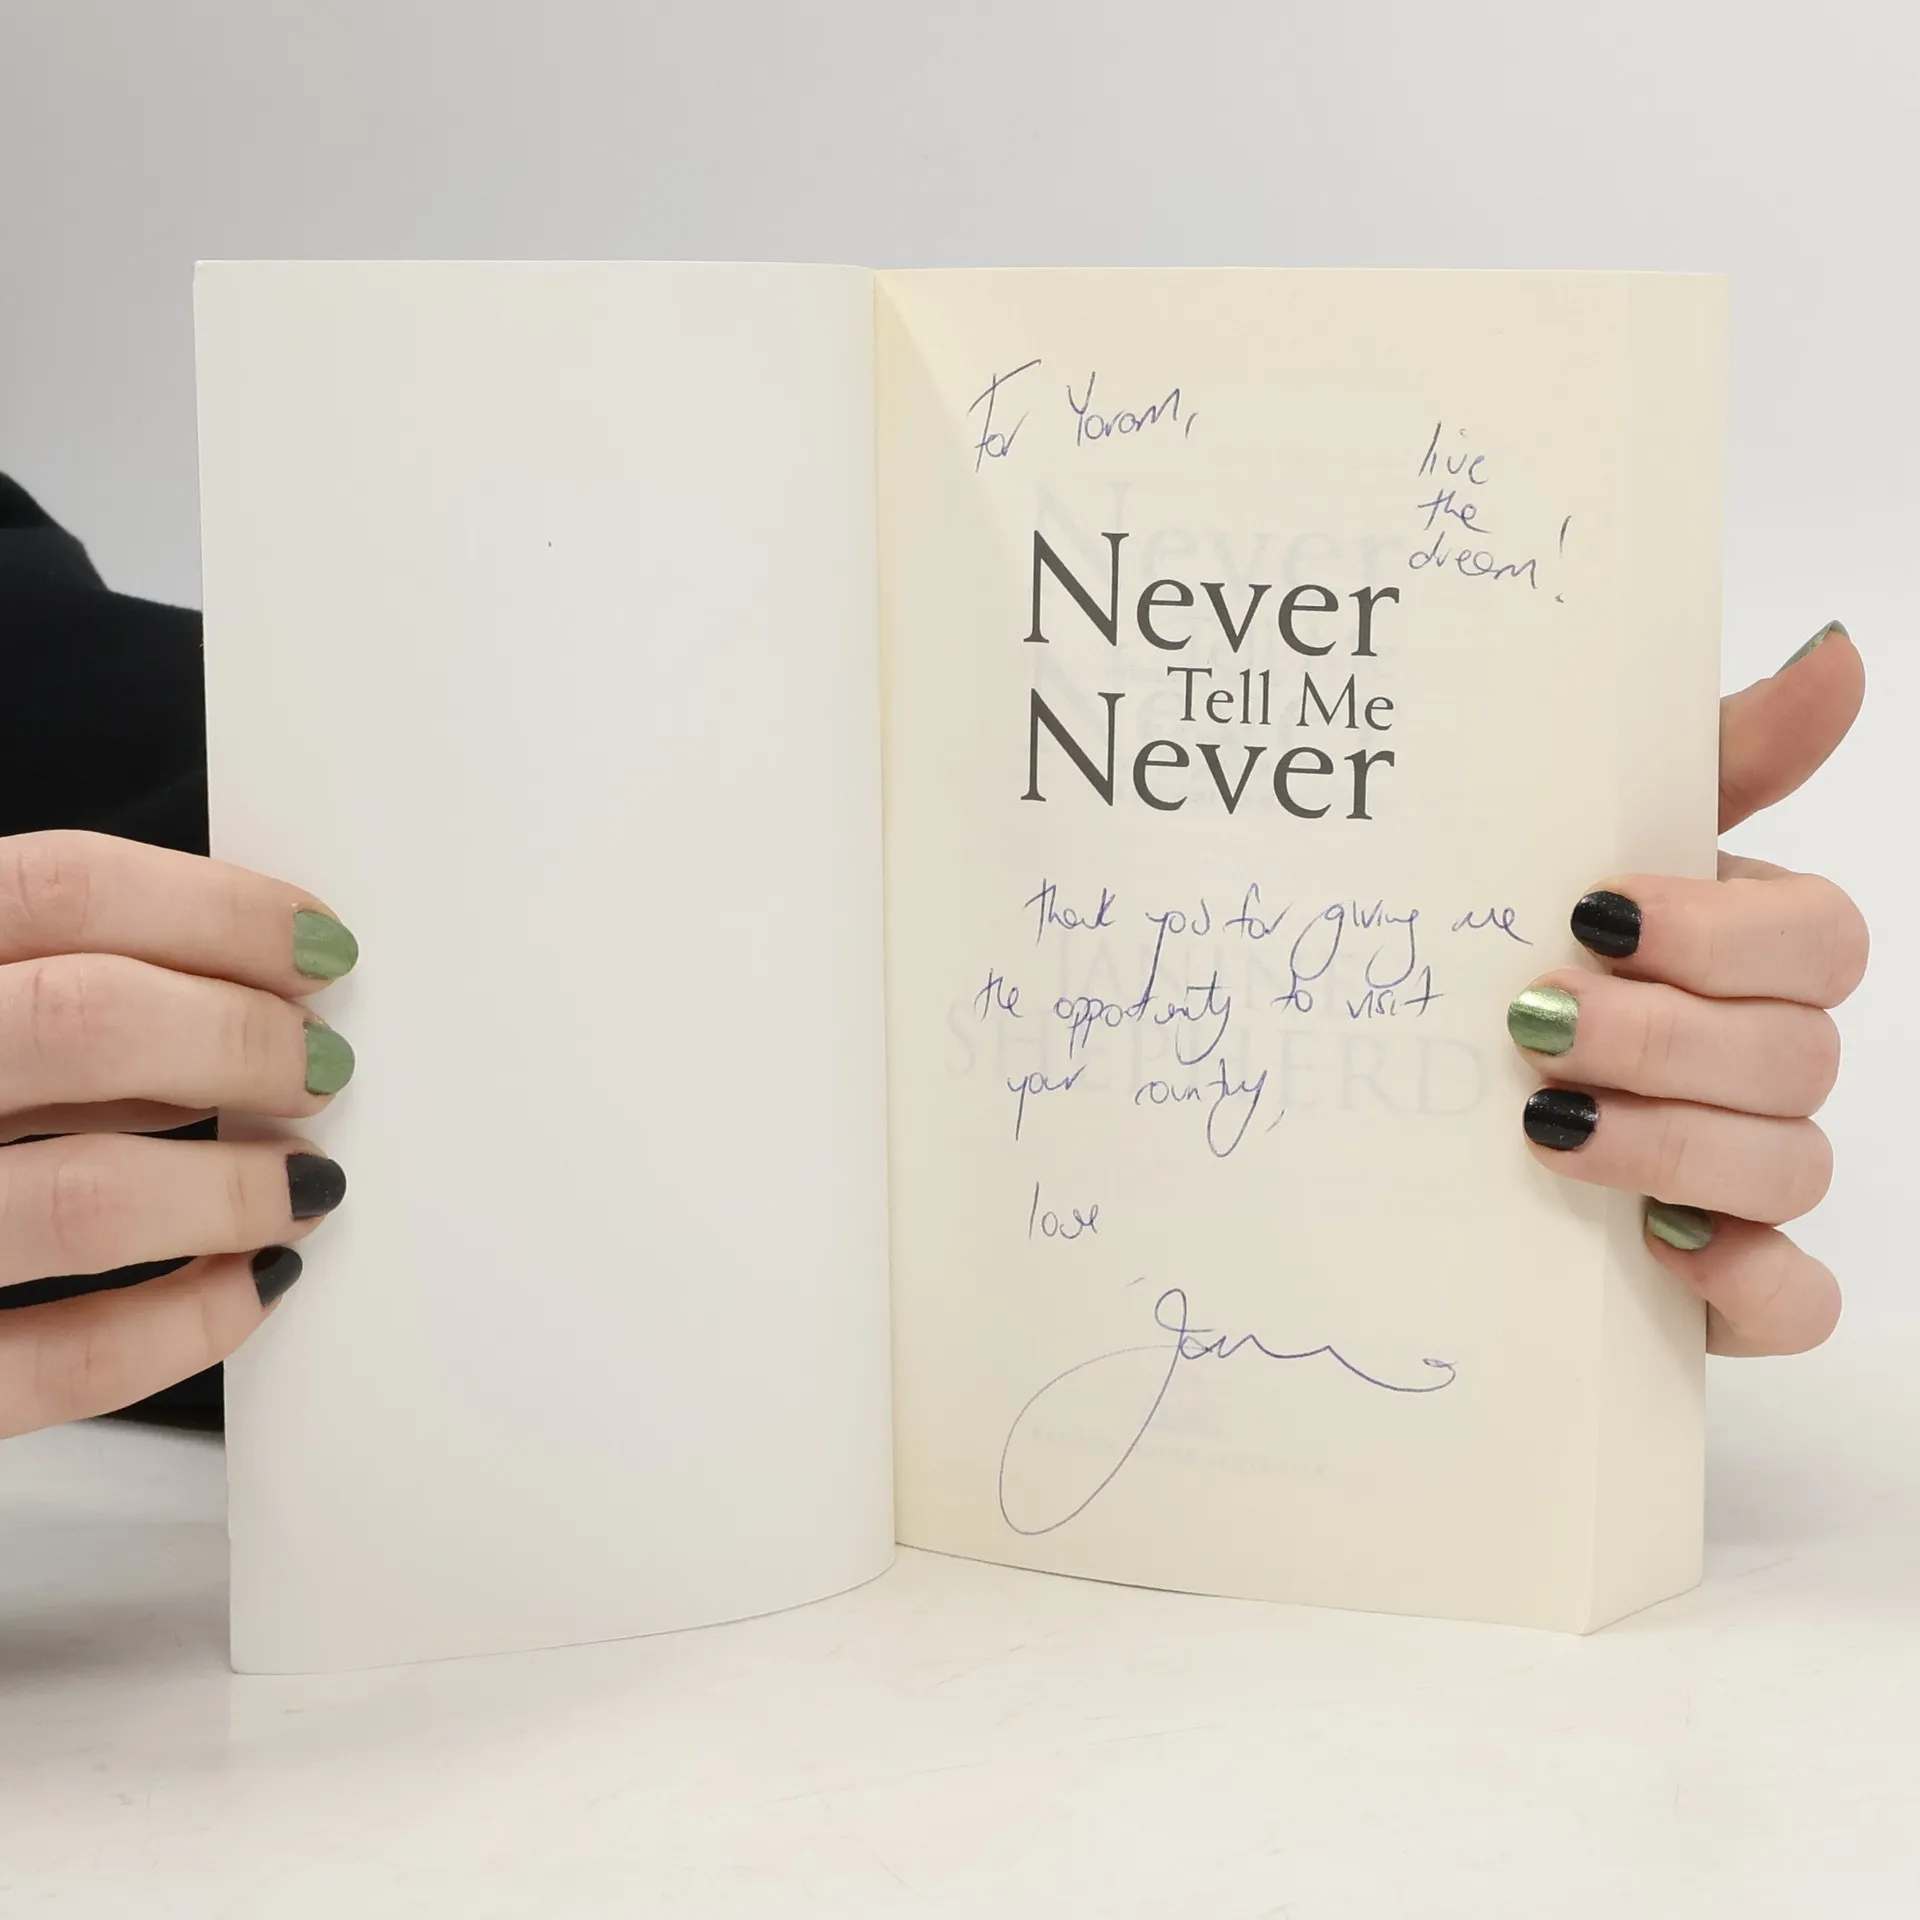 For Yoram,
live
the
dream!
Never
Tell Me
Never
JANINE
SHEPHERD
thank you for giving me
the opportunity to visit
your country,
love
Janine